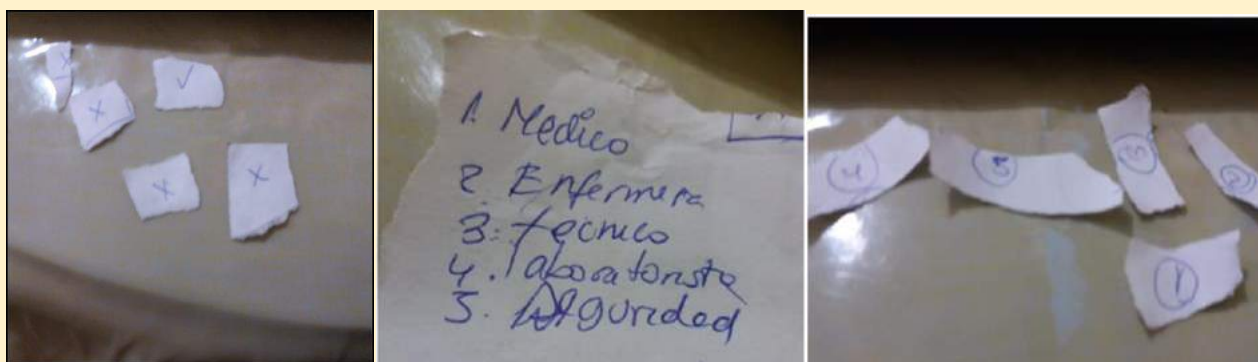 x
✓
x
x
x
1. Medico
2. Enfermera
3. tecnico
4. laboratorista
5. seguridad
4
5
3
2
1